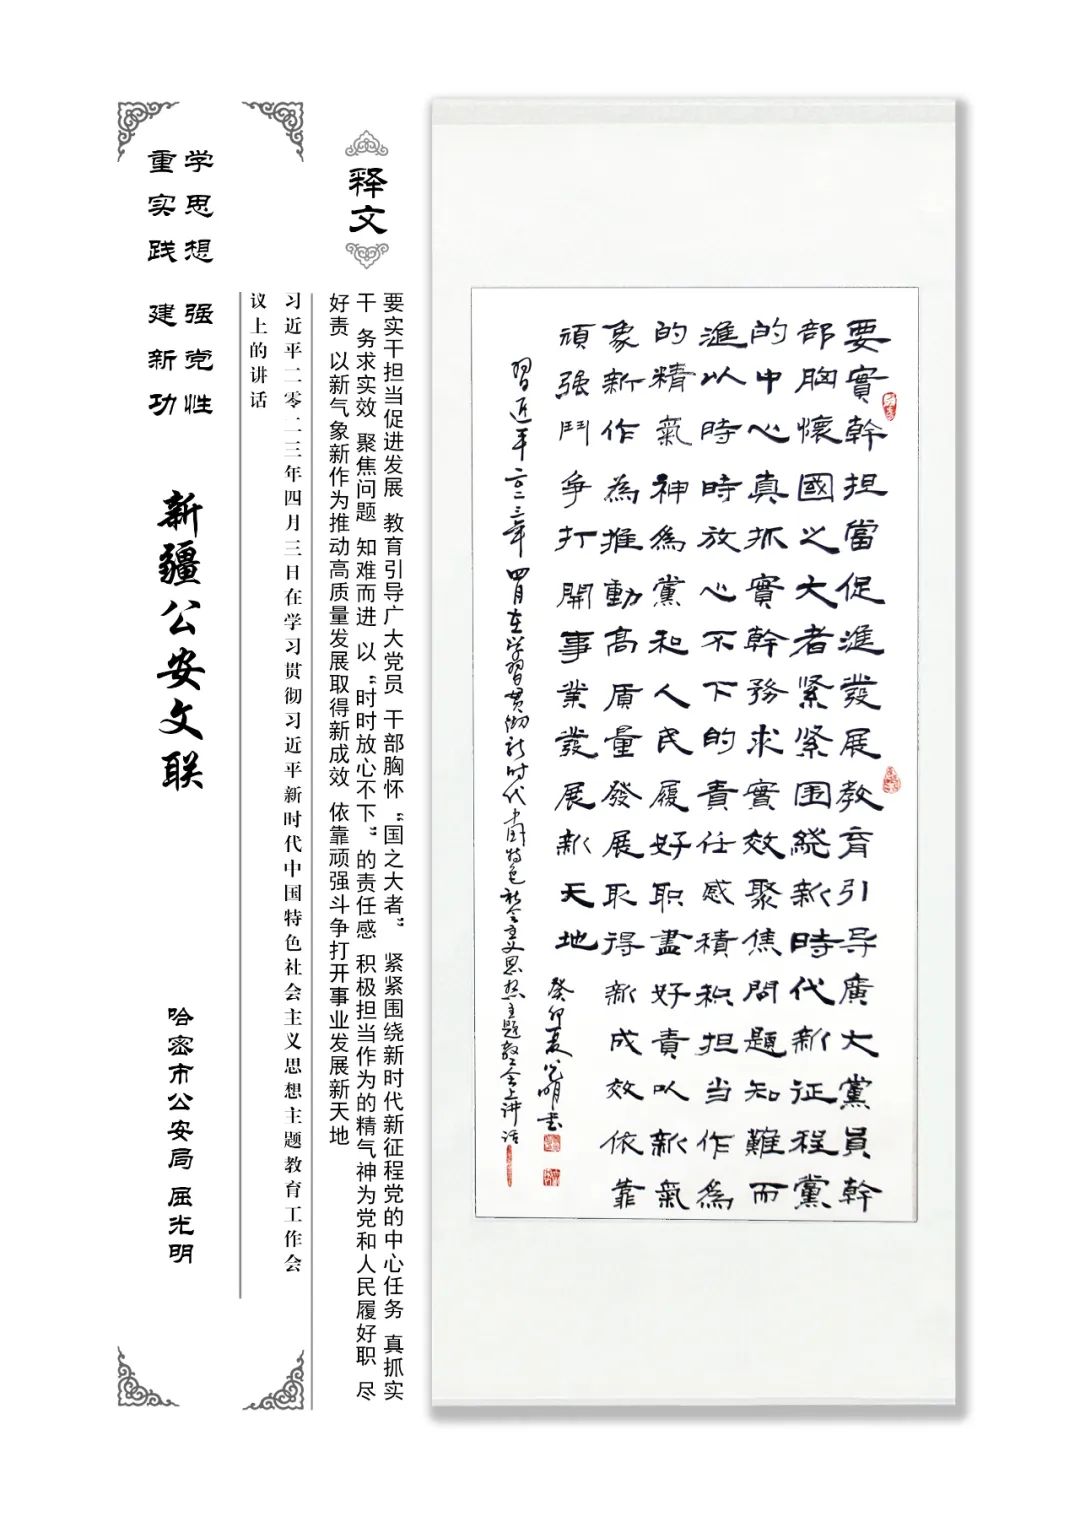 要實幹担當促進發展教育引导廣大黨員幹
部胸懷國之大者紧紧围绕新時代新征程黨
的中心真抓實幹務求實效聚焦問題知難而
進以時時放心不下的責任感積积担当作為
的精氣神為黨和人民履好职盡好責以新氣
象新作為推動髙质量發展取得新成效依靠
頑强鬥争打開事業發展新天地
習近平二〇二三年四月在学習贯彻新时代中国特色社会主义思想主题教会上讲话
癸卯夏光明书
释文
要实干担当促进发展 教育引导广大党员 干部胸怀“国之大者” 紧紧围绕新时代新征程党的中心任务 真抓实
干 务求实效 聚焦问题 知难而进 以“时时放心不下”的责任感 积极担当作为的精气神为党和人民履好职 尽
好责 以新气象新作为推动高质量发展取得新成效 依靠顽强斗争打开事业发展新天地
习近平二零二三年四月三日在学习贯彻习近平新时代中国特色社会主义思想主题教育工作会
议上的讲话
学思想 强党性
重实践 建新功
新疆公安文联
哈密市公安局 屈光明